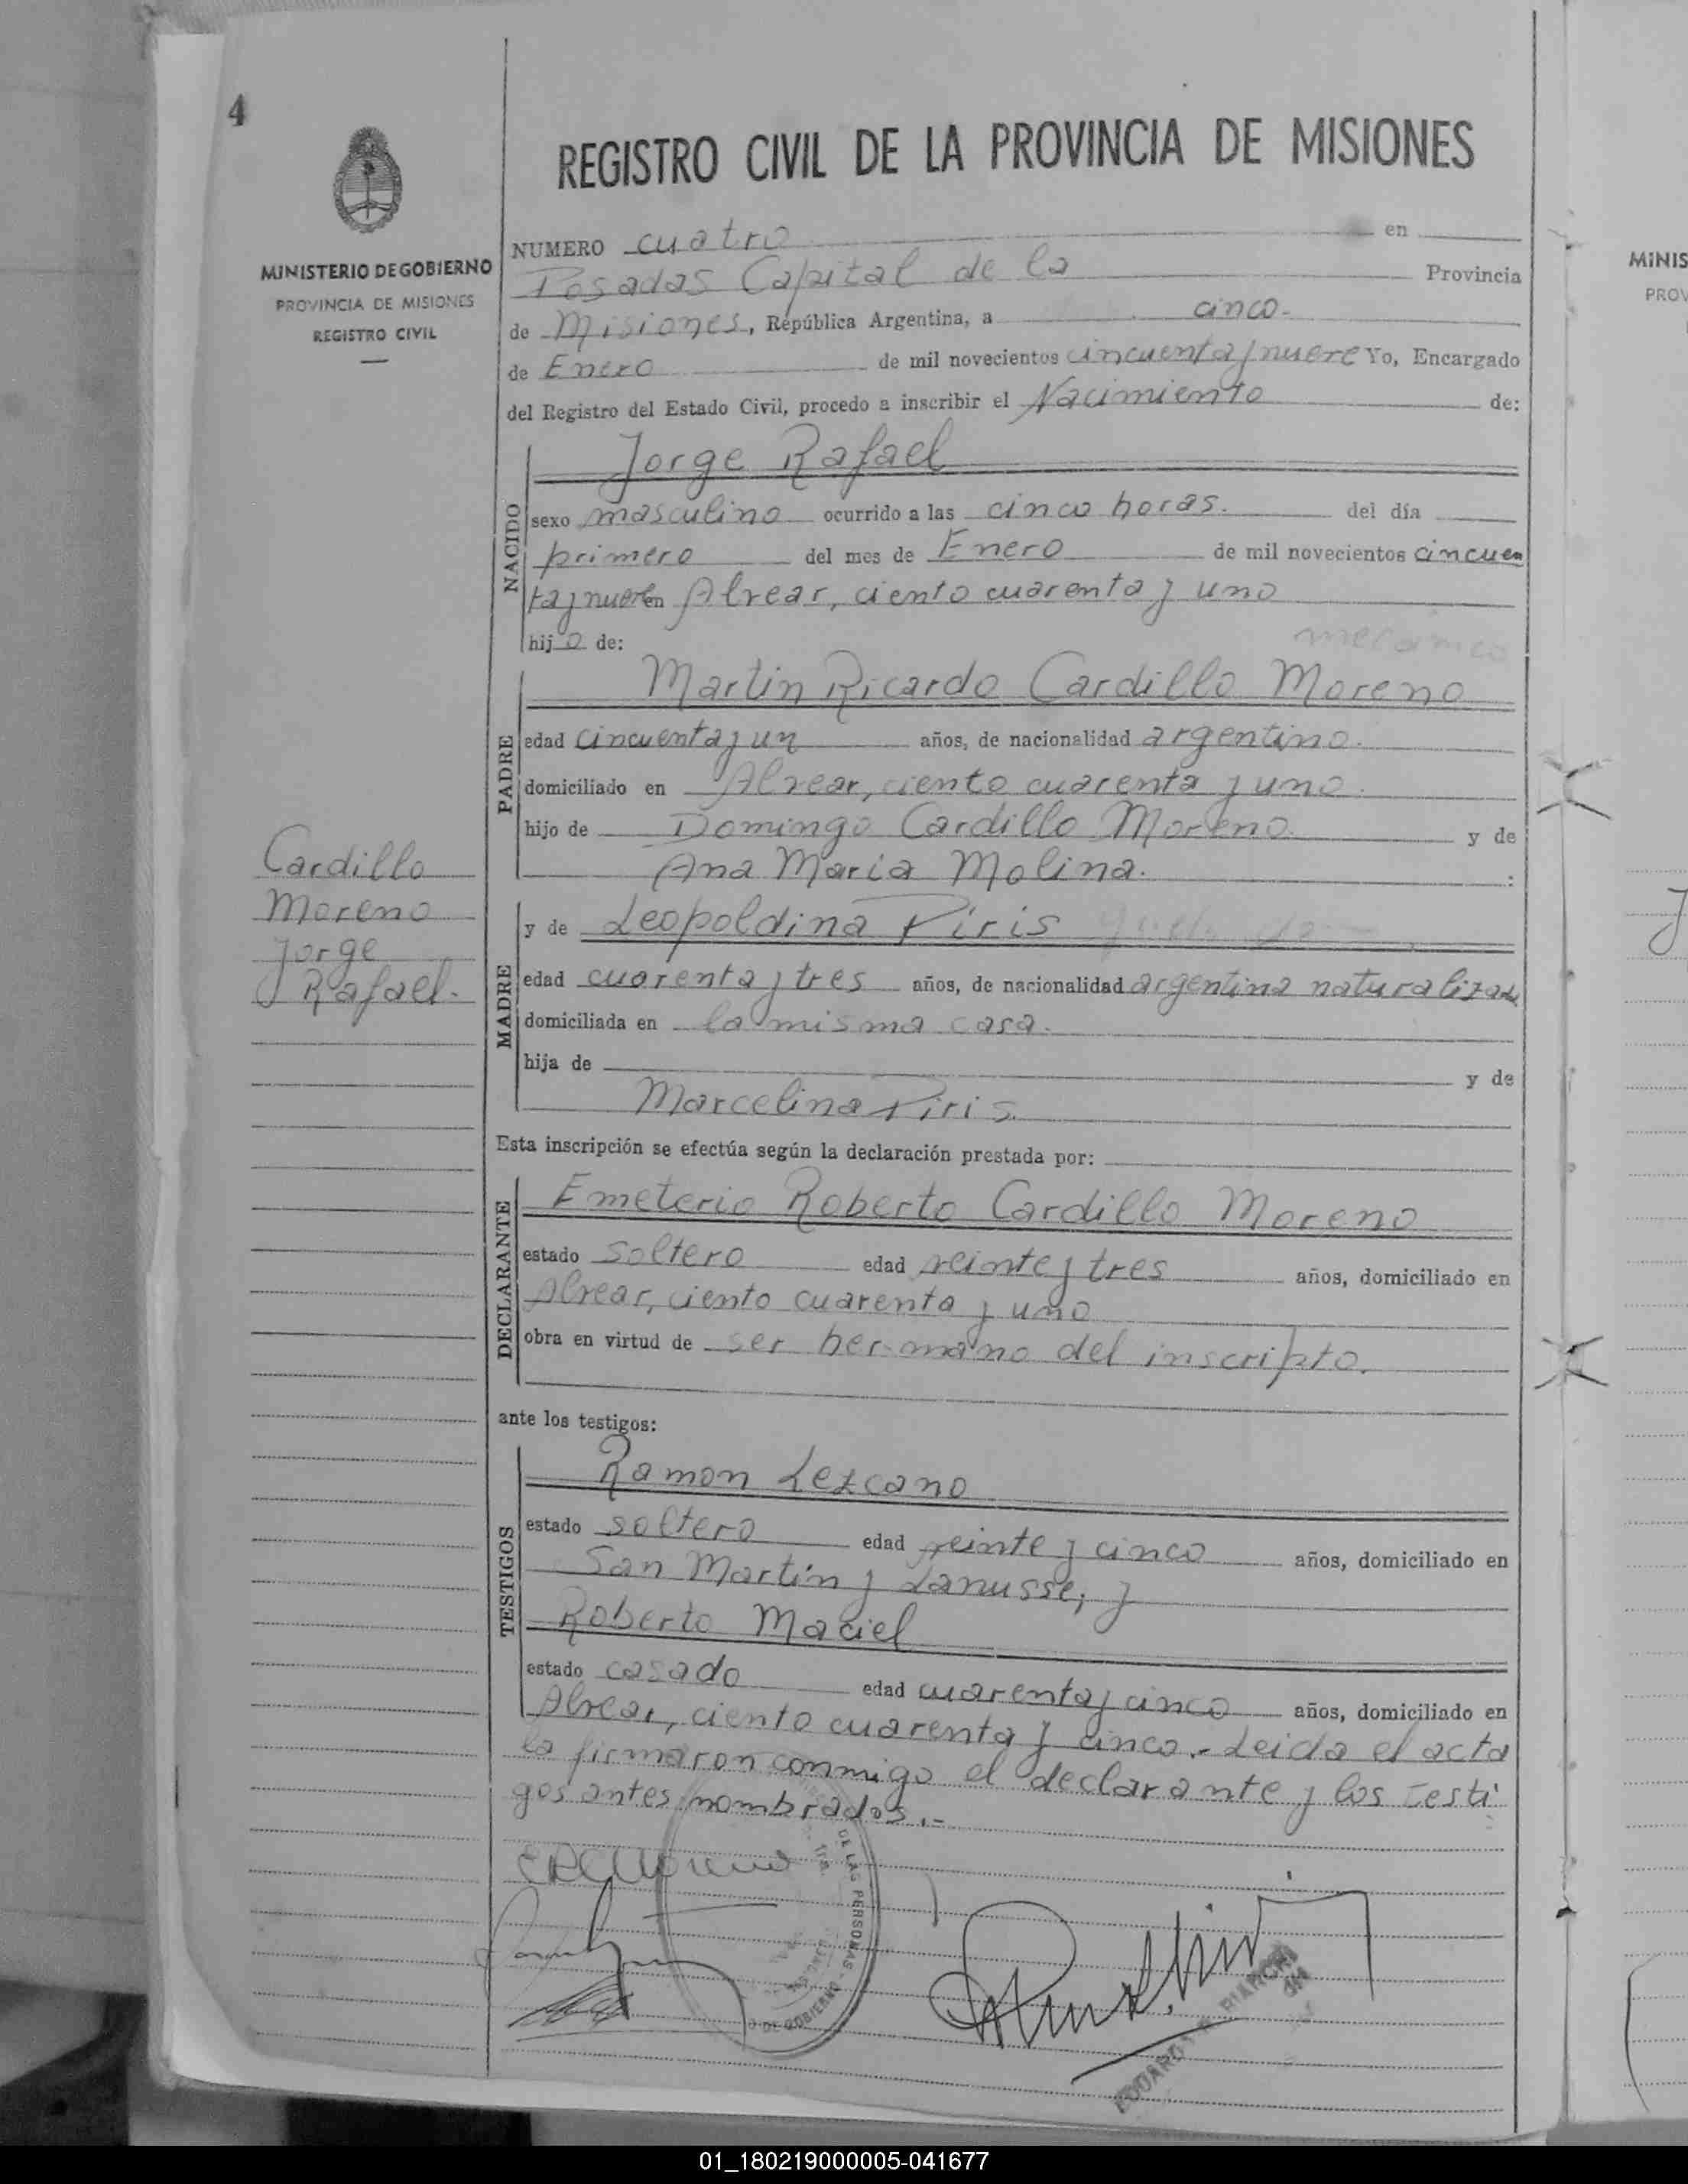 4
REGISTRO CIVIL DE LA PROVINCIA DE MISIONES
MINISTERIO DE GOBIERNO
PROVINCIA DE MISIONES
REGISTRO CIVIL
NUMERO cuatro en
Posadas Capital de la Provincia
de Misiones, República Argentina, a cinco.
de Enero de mil novecientos cincuenta y nueve Yo, Encargado
del Registro del Estado Civil, procedo a inscribir el Nacimiento de:
NACIDO
Jorge Rafael
sexo masculino ocurrido a las cinco horas. del día
primero del mes de Enero de mil novecientos cincuen
ta y nueve en Alvear, ciento cuarenta y uno
hijo de: mecanico
PADRE
Martin Ricardo Cardillo Moreno
edad cincuenta y un años, de nacionalidad argentino.
domiciliado en Alvear, ciento cuarenta y uno.
hijo de Domingo Cardillo Moreno. y de
Ana Maria Molina. :
Cardillo
Moreno
Jorge
Rafael.-
MADRE
y de Leopoldina Piris
edad cuarenta y tres años, de nacionalidad argentina naturalizada
domiciliada en la misma casa.
hija de y de
Marcelina Piris.
Esta inscripción se efectúa según la declaración prestada por:
DECLARANTE
Emeterio Roberto Cardillo Moreno
estado soltero edad veinte y tres años, domiciliado en
Alvear, ciento cuarenta y uno
obra en virtud de ser hermano del inscripto.
ante los testigos:
TESTIGOS
Ramon Lezcano
estado soltero edad veinte y cinco años, domiciliado en
San Martin y Lanusse; y
Roberto Maciel
estado casado edad cuarenta y cinco años, domiciliado en
Alvear, ciento cuarenta y cinco.- Leida el acta
la firmaron conmigo el declarante y los testi
gos antes nombrados.-
DE LAS PERSONAS -
O DE GOBIERNO
MISIONES
EDUARDO
MINIS
PROV
01_180219000005-041677